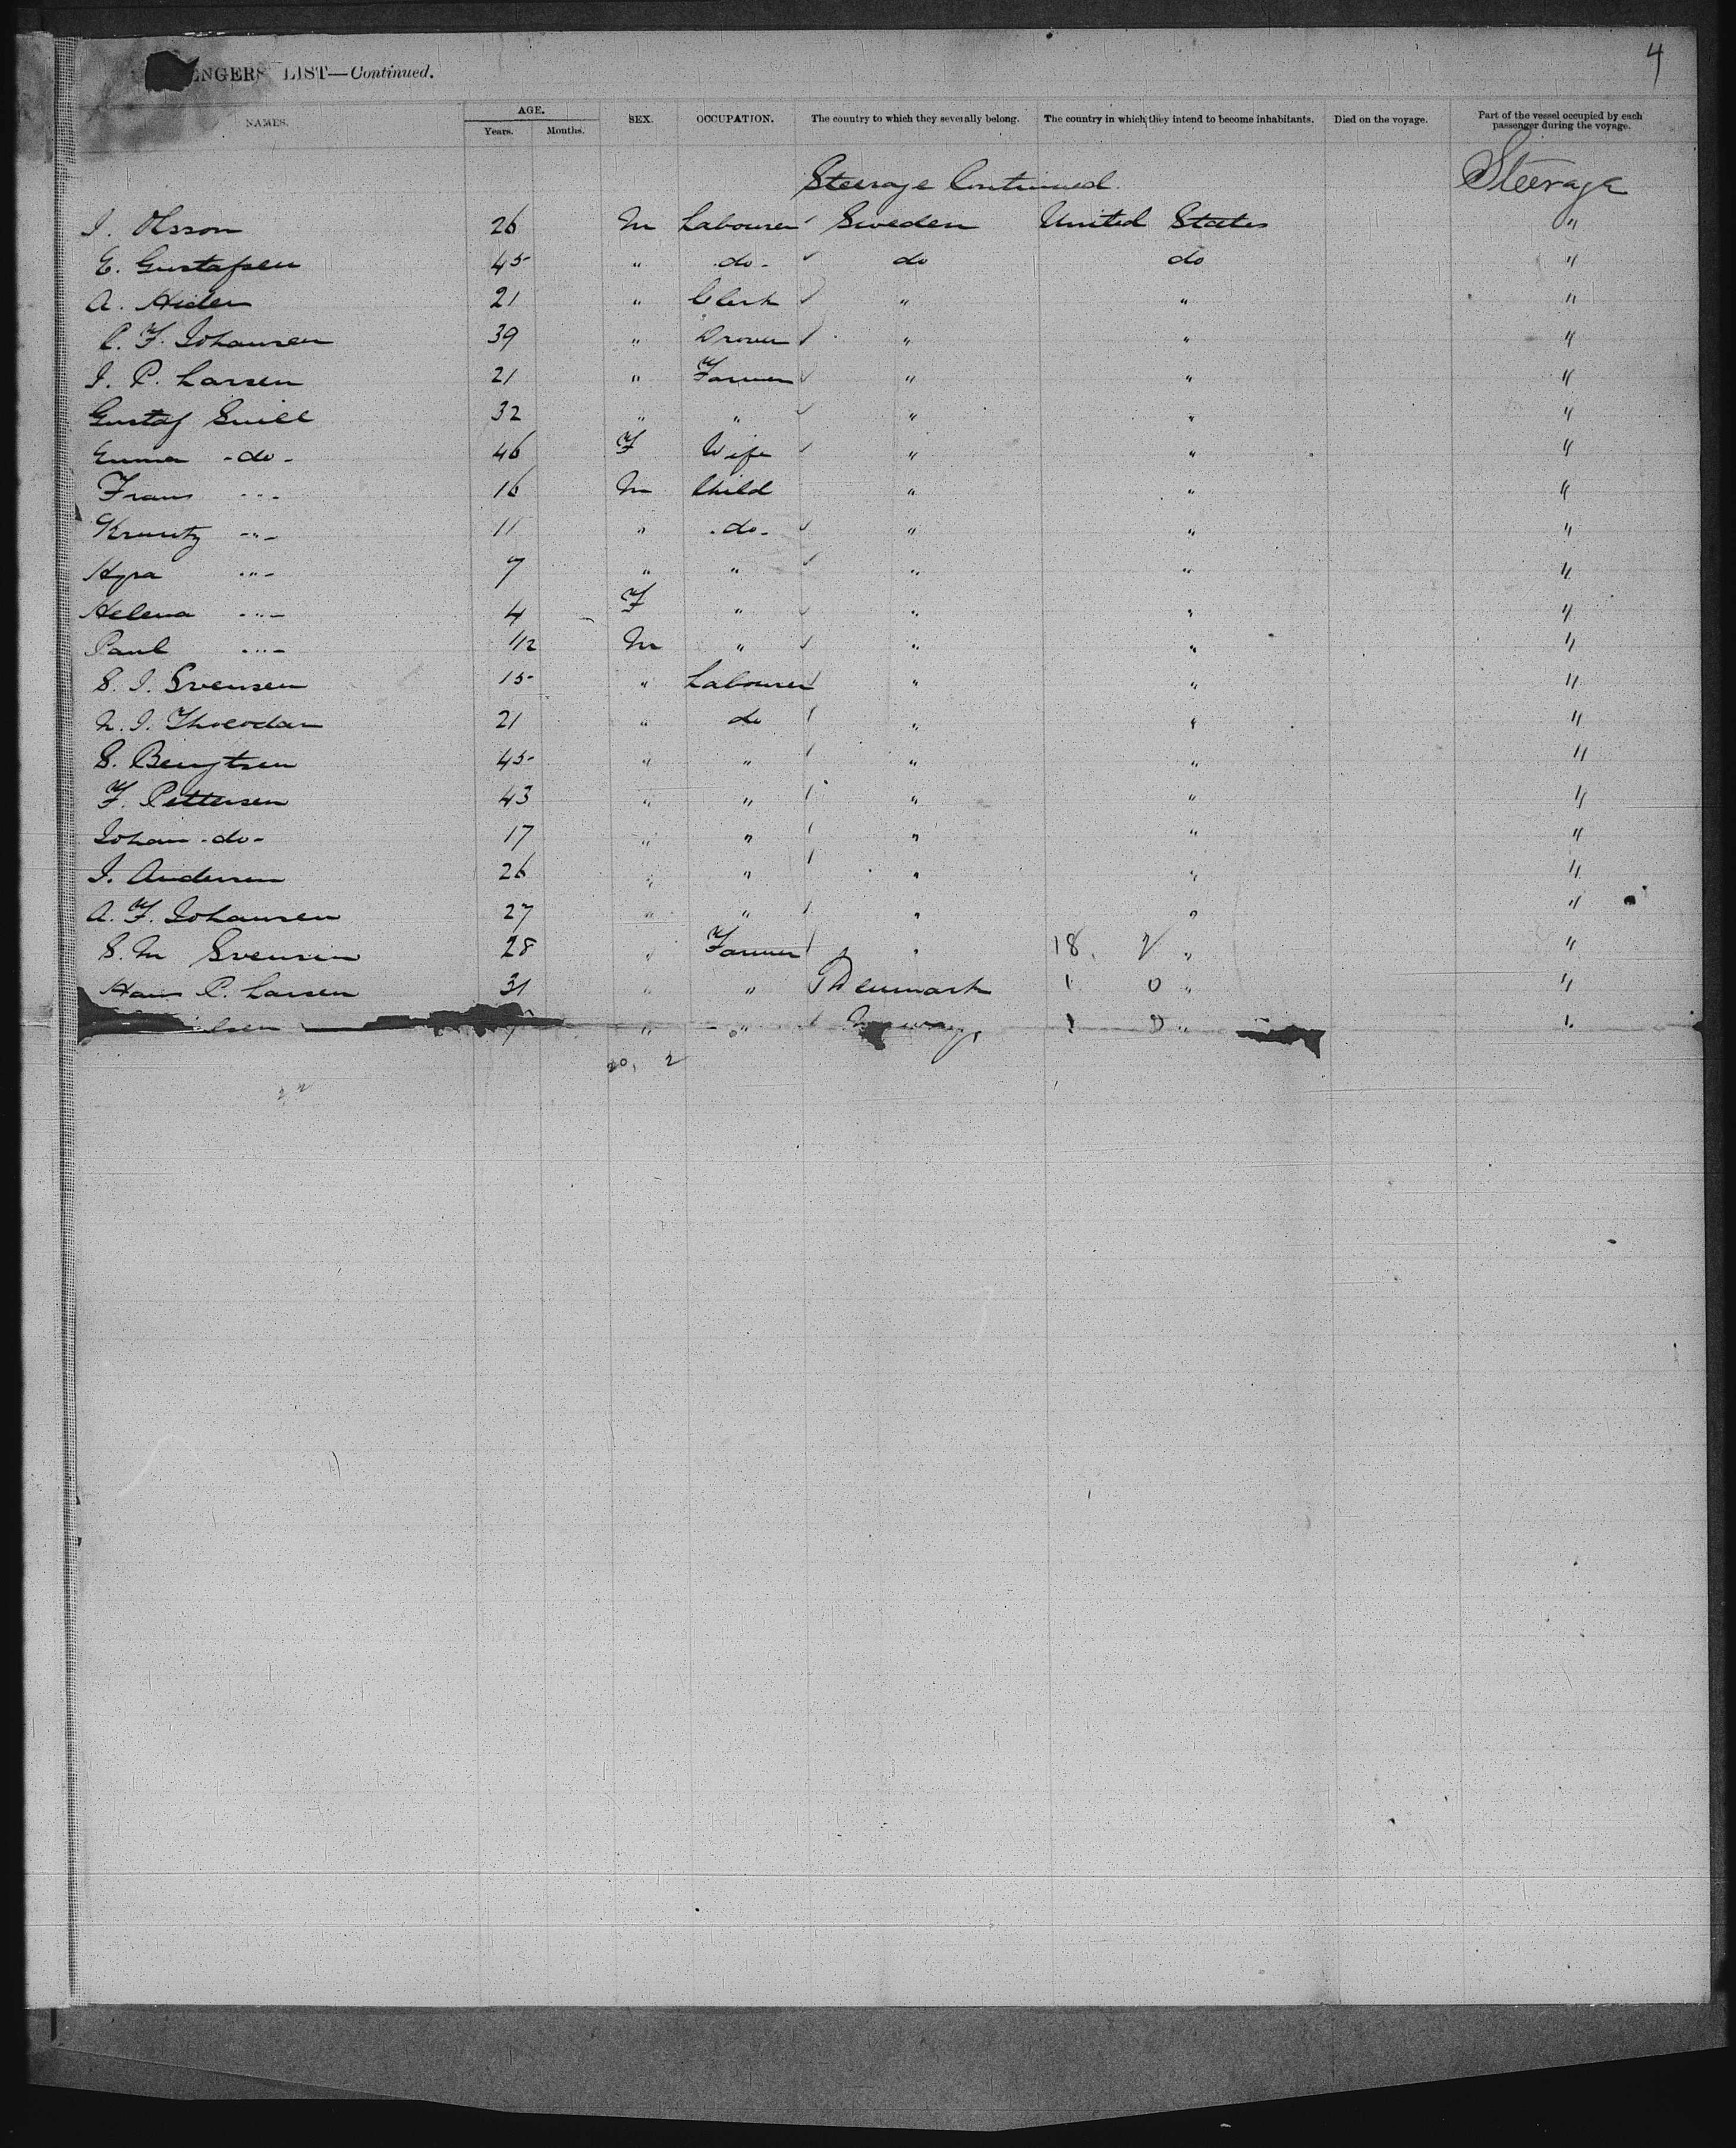 4
ENGERS' LIST—Continued.
NAMES. AGE. Years. Months. SEX. OCCUPATION. The country to which they severally belong. The country in which they intend to become inhabitants. Died on the voyage. Part of the vessel occupied by each passenger during the voyage.
Steerage Continued. Steerage
I. Olsson 26 M Labourer Sweden United States "
E. Gustafsen 45 " -do- do do "
A. 21 " Clerk " " "
C. F. Johansen 39 " Drover " " "
I. P. Larsen 21 " Farmer " " "
Gustaf 32 " " " " "
Emma -do- 46 F Wife " " "
Frans -"- 16 M Child " " "
-"- 11 " -do- " " "
-"- 7 " " " " "
Helena -"- 4 F " " " "
Paul -"- 1/12 M " " " "
S. I. Svensen 15 " Labourer " " "
N. I. 21 " do " " "
S. Bengtsen 45 " " " " "
F. Pettersen 43 " " " " "
Johan -do- 17 " " " " "
I. Andersen 26 " " " " "
A. F. Johansen 27 " " " " "
S. M Svensen 28 " Farmer " 18, 2 " "
Hans P. Larsen 31 " " Denmark 1 0 " "
lsen " " 1 0 " "
20, 2
22